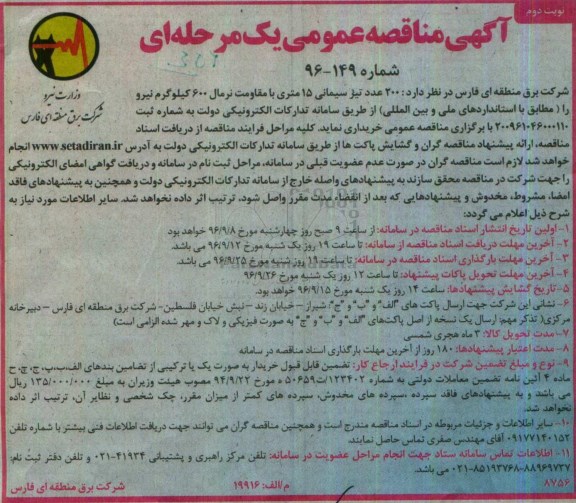 نوبت دوم
آگهی مناقصه عمومی یک مرحله‌ای
شماره ۱۴۹-۹۶
وزارت نیرو
شرکت برق منطقه‌ای فارس
شرکت برق منطقه ای فارس در نظر دارد: ۲۰۰ عدد تیر سیمانی ۱۵ متری با مقاومت نرمال ۶۰۰ کیلوگرم نیرو
را ( مطابق با استانداردهای ملی و بین المللی) از طریق سامانه تدارکات الکترونیکی دولت به شماره ثبت
۲۰۰۹۶۱۰۴۶۰۰۰۱۱۰ با برگزاری مناقصه عمومی خریداری نماید. کلیه مراحل فرایند مناقصه از دریافت اسناد
مناقصه، ارائه پیشنهاد مناقصه گران و گشایش پاکت ها از طریق سامانه تدارکات الکترونیکی دولت به آدرس www.setadiran.ir انجام
خواهد شد. لازم است مناقصه گران در صورت عدم عضویت قبلی در سامانه، مراحل ثبت نام در سامانه و دریافت گواهی امضای الکترونیکی
را جهت شرکت در مناقصه محقق سازند به پیشنهادهای واصله خارج از سامانه تدارکات الکترونیکی دولت و همچنین به پیشنهادهای فاقد
امضا، مشروط، مخدوش و پیشنهادهایی که بعد از انقضاء مدت مقرر واصل شود، ترتیب اثر داده نخواهد شد. سایر اطلاعات مورد نیاز به
شرح ذیل اعلام می گردد:
۱- اولین تاریخ انتشار اسناد مناقصه در سامانه: از ساعت ۹ صبح روز چهارشنبه مورخ ۹۶/۹/۸ خواهد بود
۲- آخرین مهلت دریافت اسناد مناقصه از سامانه: تا ساعت ۱۹ روز یک شنبه مورخ ۹۶/۹/۱۲ می باشد.
۳- آخرین مهلت بارگذاری اسناد مناقصه در سامانه: تا ساعت ۱۹ روز شنبه مورخ ۹۶/۹/۲۵ می باشد.
۴- آخرین مهلت تحویل پاکات پیشنهاد: تا ساعت ۱۲ روز یک شنبه مورخ ۹۶/۹/۲۶
۵- تاریخ گشایش پیشنهادها: ساعت ۱۴ روز یک شنبه مورخ ۹۶/۹/۱۵ خواهد بود.
۶- نشانی این شرکت جهت ارسال پاکت های "الف" و "ب" و "ج": شیراز- خیابان زند – نبش خیابان فلسطین- شرکت برق منطقه ای فارس – دبیرخانه
مرکزی( تذکر مهم: ارسال یک نسخه از اصل پاکت‌های "الف" و "ب" و "ج" به صورت فیزیکی و لاک و مهر شده الزامی است)
۷- مدت تحویل کالا: ۳ ماه هجری شمسی
۸- مدت اعتبار پیشنهادها: ۱۸۰ روز از آخرین مهلت بارگذاری اسناد مناقصه در سامانه
۹- نوع و مبلغ تضمین شرکت در فرایند ارجاع کار: تضمین قابل قبول خریدار به صورت یک یا ترکیبی از تضامین بندهای الف،ب،پ،ج،چ،ح
ماده ۴ آئین نامه تضمین معاملات دولتی به شماره ۱۲۳۴۰۲/ت۵۰۶۵۹ ه مورخ ۹۴/۹/۲۲ مصوب هیئت وزیران به مبلغ ۱۳۵/۰۰۰/۰۰۰ ریال
می باشد و به پیشنهادهای فاقد سپرده ،سپرده های مخدوش، سپرده های کمتر از میزان مقرر، چک شخصی و نظایر آن، ترتیب اثر داده
نخواهد شد.
۱۰- سایر اطلاعات و جزئیات مربوطه در اسناد مناقصه مندرج است و همچنین مناقصه گران می توانند جهت دریافت اطلاعات فنی بیشتر با شماره تلفن
۰۹۱۷۷۱۴۰۱۵۲ آقای مهندس صفری تماس حاصل نمایند.
۱۱- اطلاعات تماس سامانه ستاد جهت انجام مراحل عضویت در سامانه: تلفن مرکز راهبری و پشتیبانی ۴۱۹۳۴-۰۲۱ و تلفن دفتر ثبت نام:
۸۸۹۶۹۷۳۷-۸۵۱۹۳۷۶۸-۰۲۱ می باشد.
۸۷۵۶
م/الف: ۱۹۹۱۶
شرکت برق منطقه ای فارس